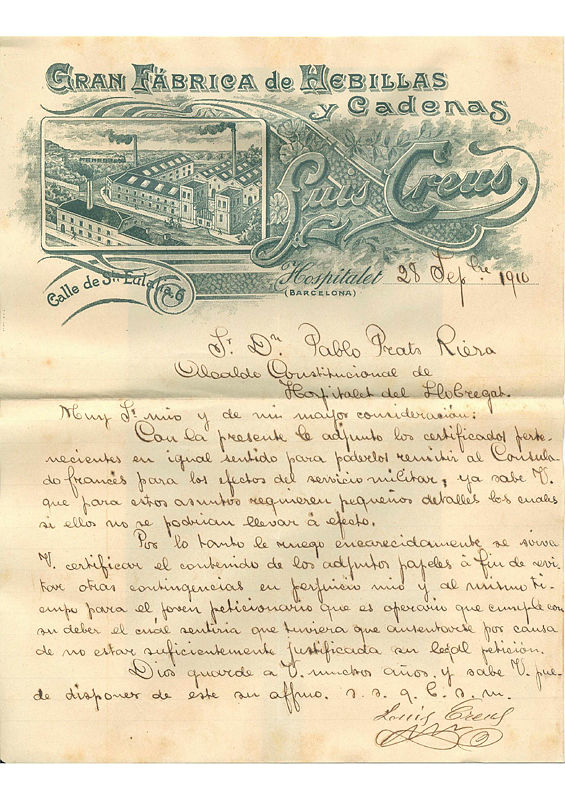 GRAN FÁBRICA de HEBILLAS
y Cadenas
Luis Creus
Calle de Sta. Eulalia, 6
Hospitalet 28 Sepbre 1910
(BARCELONA)
Sr. Dn. Pablo Prats Riera
Alcalde Constitucional de
Hospitalet del Llobregat.
Muy Sr. mio y de mi mayor consideración:
Con la presente le adjunto los certificados perte-
necientes en igual sentido para poderlos remitir al Consula-
do francés para los efectos del servicio militar, ya sabe V.
que para estos asuntos requieren pequeños detalles los cuales
si ellos no se podrian llevar á efecto.
Por lo tanto le ruego encarecidamente se sirva
V. certificar el contenido de los adjuntos papeles á fin de evi-
tar otras contingencias en perjuicio mio y al mismo ti-
empo para el joven peticionario que es operario que cumple con
su deber el cual sentiria que tuviera que ausentarse por causa
de no estar suficientemente justificada su legal petición.
Dios guarde a V. muchos años, y sabe V. pue-
de disponer de este su affmo. s. s. q. b. s. m.
Luis Creus